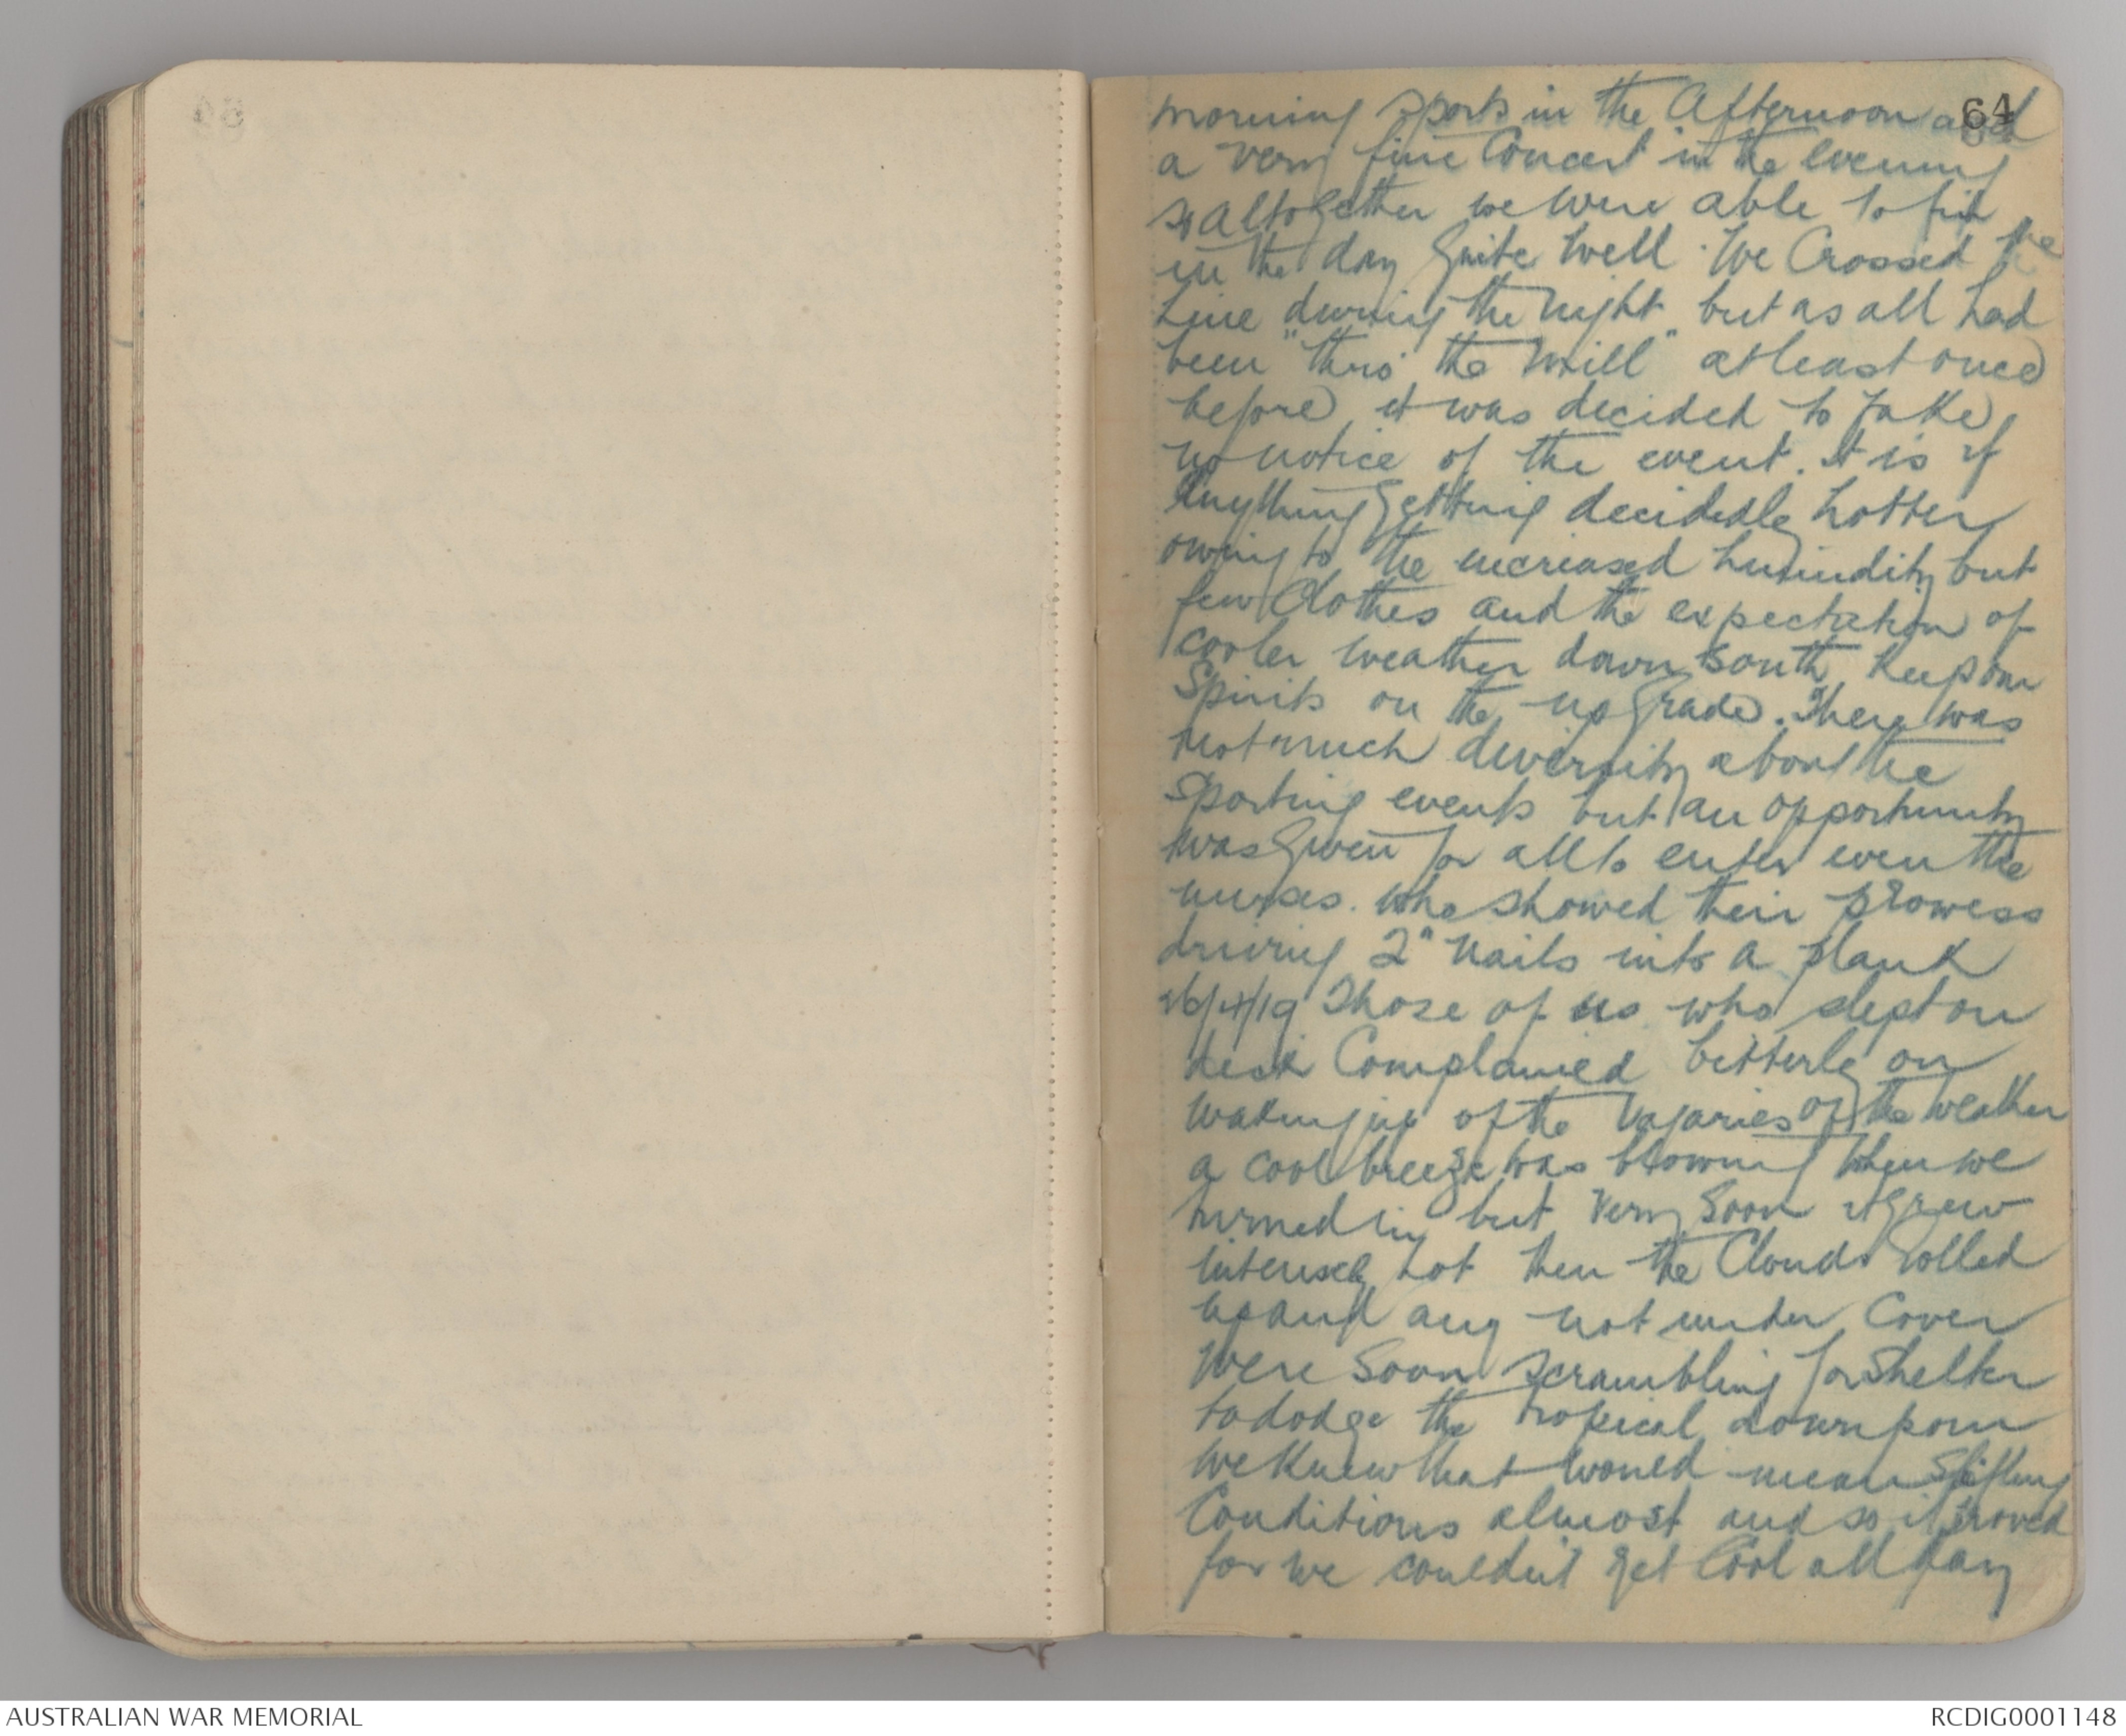 64
morning sports in the Afternoon and
a very fine Concert in the evening
so altogether we were able to put
in the day quite well. We Crossed the
Line during the night but as all had
been "thro' the Mill" at least once
before it was decided to take
no notice of the event. It is if
anything getting decidedly hotter
owing to the increased humidity but
few Clothes and the expectation of
cooler weather down South keep our
Spirits on the up grade. There was
not much diversity about the
sporting events but an opportunity
was given for all to enter even the
nurses. who showed their prowess
driving 2" nails into a plank
26/4/19 Those of us who slept on
deck Complained bitterly on
waking up of the vagaries of the weather
a cool breeze was blowing when we
turned in but very soon it grew
intensely hot then the Clouds rolled
up and any not under Cover
were soon scrambling for shelter
to dodge the tropical downpour
We knew that would mean stifling
Conditions almost and so it proved
for we couldn't get Cool all day
AUSTRALIAN WAR MEMORIAL
RCDIG0001148